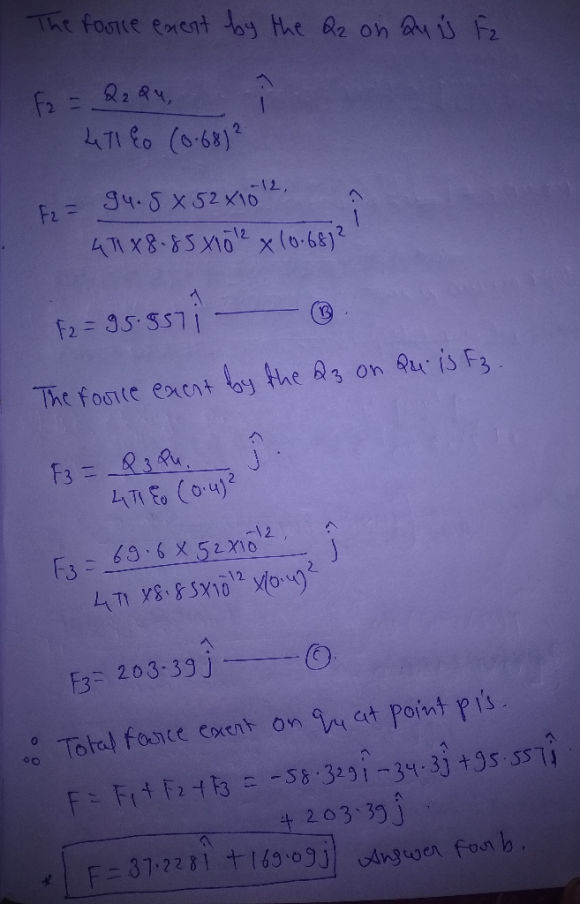 The force exert by the Q2 on Q4 is F2
F2 = Q2 Q4 / 4πε0 (0.68)² î
F2 = 94.5 × 52 × 10⁻¹² / 4π × 8.85 × 10⁻¹² × (0.68)² î
F2 = 95.557 î —— Ⓑ.
The force exert by the Q3 on Q4 is F3.
F3 = Q3 Q4 / 4πε0 (0.4)² ĵ.
F3 = 69.6 × 52 × 10⁻¹² / 4π × 8.85 × 10⁻¹² × (0.4)² ĵ
F3 = 203.39 ĵ —— Ⓒ.
∴ Total force exert on q4 at point p is.
F = F1 + F2 + F3 = -58.329 î - 34.3 ĵ + 95.557 î
+ 203.39 ĵ.
* F = 37.228 î + 169.09 ĵ Answer for b.